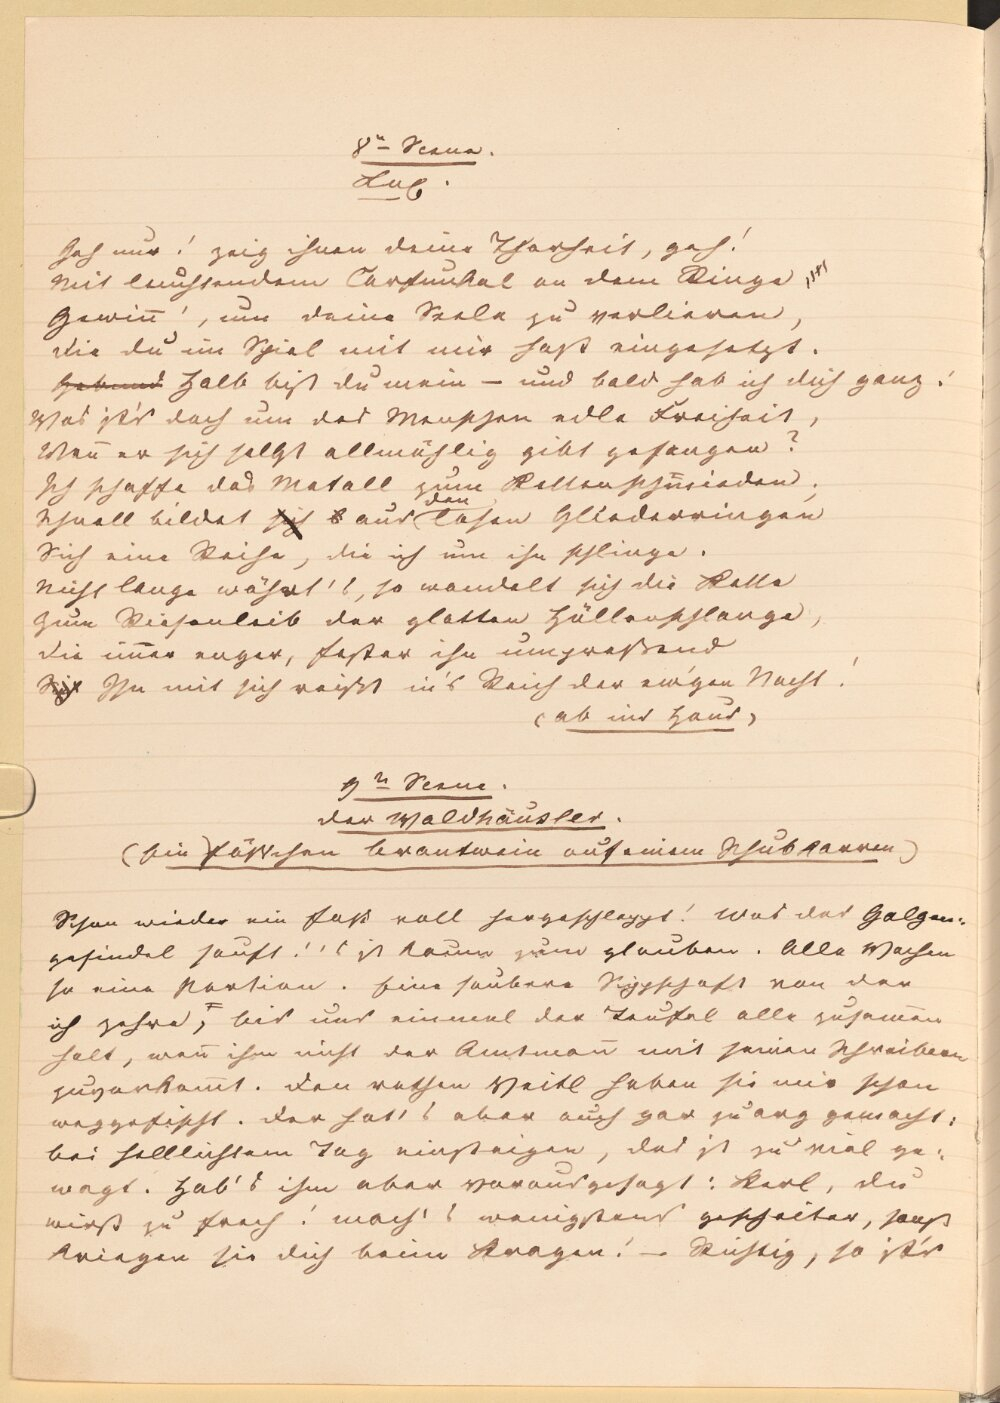 8te Scene.
Luc.
Geh nur! zeig ihnen deine Thorheit, geh!
Mit leuchtendem Carfunkel an dem Ringe
Gewinn', um deine Seele zu verlieren,
Die du im Spiel mit mir hast eingesetzt.
Halb bist du mein – und bald hab ich dich ganz!
Was ist's doch um des Menschen edle Freiheit,
Wenn er sich selbst allmählig gibt gefangen?
Ich schaffe das Metall zum Kettenschmieden;
Schnell bildet sich aus den losen Gliederringen
Sich eine Reihe, die ich um ihn schlinge.
Nicht lange währt's, so wandelt sich die Kette
Zum Riesenleib der glatten Höllenschlange,
Die immer enger, fester ihn umpressend
Ihn mit sich reißt in's Reich der ew'gen Nacht!
(ab ins Haus)
9te Scene.
Der Waldhäusler.
(Ein Fäßchen Brantwein auf einem Schubkarren)
Schon wieder ein Faß voll hergeschleppt! Was das Galgen-
gesindel sauft! 's ist kaum zum glauben. Alle Wochen
so eine Portion. Eine saubere Sippschaft von der
ich zehre, bis uns einmal der Teufel alle zusammen
holt, wenn ihm nicht der Amtmann mit seinen Schreibern
zuvorkommt. Den rothen Veitl haben sie mir schon
weggefischt. Der hat's aber auch gar zu arg gemacht:
bei helllichtem Tag einsteigen, das ist zu viel ge-
wagt. Hab's ihm aber vorausgesagt: Kerl, du
wirst zu frech! mach's wenigstens gescheiter, sonst
kriegen sie dich beim Kragen! – Richtig, so ist's